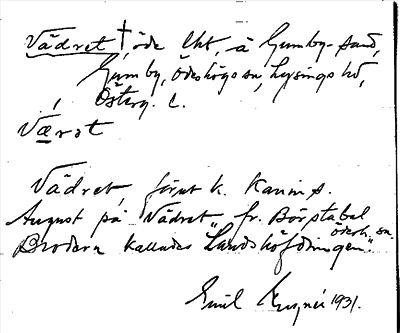 Vädret †, öde lht, å Gumby-sand,
Gumby, Ödeshögs sn, Lysings hd,
Österg. l.
Værət
Vädret, förut k. Karin s.
August på Vädret fr. Börstabel
ödesh. sn.
Brodern kallades "Landshöfdingen".
Emil 1931.